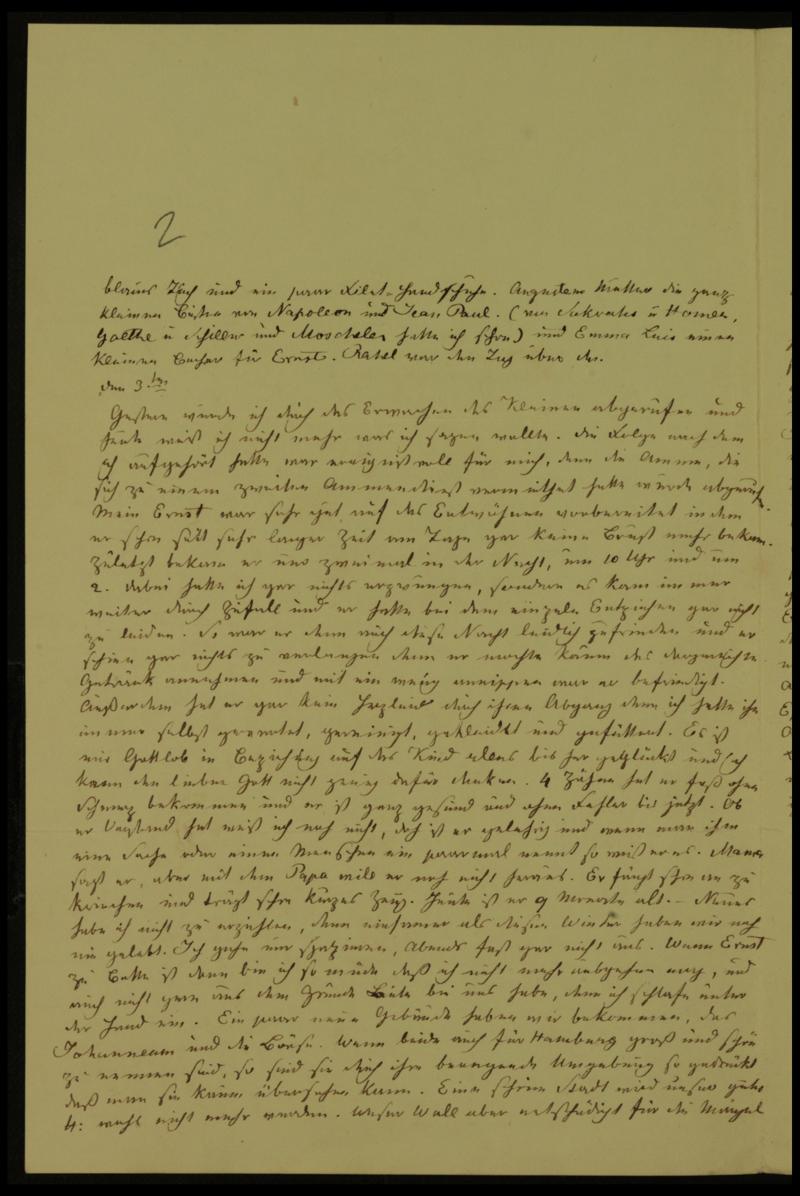 2
blaues Tuch und ein paar Filet-Handschuhe. Augustens Mutter die ganz
kleinen Büsten von Napoleon und Jean Paul. (von Sokrates u Homer,
Goethe u Schiller und Moscheles hatte ich schon) und Emma Leis einen
kleinen Becher für Ernst. Rahel war den Tag über da.
den 3.ten
Gestern wurde ich durch das Erwachen des Kleinen abgerufen und
heute weiß ich nicht mehr was ich sagen wollte. Die Folge nach dem
ich aufgehört hatte war ereignisvoll für mich, denn die Amme, die
sich zu einem zweiten Ammendienst vermiethet hatte wurde abgerufen.
Mein Ernst war sehr gut auf das Entwöhnen vorbereitet indem
er schon seit sehr langer Zeit am Tage gar keine Brust mehr bekam.
Zuletzt bekam er nur zweimal in der Nacht, um 10 Uhr und um
2. dabei hatte ich gar nichts erzwungen, sondern es kam immer
weiter durch Zufall und er hatte bei dem einzeln Entziehen gar nicht
zu leiden. So war er denn auch diese Nacht leidlich zufrieden und er
schien gar nichts zu verlangen denn er mochte kaum das dargereichte
Getränk annehmen und mit ein wenig annippen war er befriedigt.
Außerdem hat er gar kein Herzleid durch ihren Abgang denn ich hatte ihn
immer selbst gewartet, gereinigt, gekleidet und gefüttert. Es ist
mir Gottlob in Beziehung auf das Kind alles bis her geglückt und ich
kann den lieben Gott nicht genug dafür danken. 4 Zähne hat er fast ohne
Schmerz bekommen und er ist ganz gesund und ohne Fehler bis jetzt. Ob
er Verstand hat weiß ich noch nicht, doch ist er gelehrig und wenn man ihm
eine Sache oder einen Menschen ein paarmal nennt so weiß er es. Mama
sagt er, aber mit dem Papa will er noch nicht heraus. Er fängt schon an zu
kriechen und trägt schon kurzes Zeug. Heute ist er 9 Monate alt. – Neues
habe ich nicht zu erzählen, denn einsamer als diesen Winter haben wir noch
nie gelebt. Ich gehe nur spatzieren, Abends fast gar nicht aus. Wenn Ernst
zu Bette ist dann bin ich so müde daß ich nicht mehr ausgehen mag, und
auch nicht gern aus dem Grunde Leute bei uns habe, denn ich schlafe unter
der Hand ein. Ein paar neue Gebäude haben wir bekommen, das
Johanneum und die Börse. Wenn beide auch für Hamburg groß und schön
zu nennen sind, so sind sie durch ihre beengende Umgebung so gedrückt
daß man sie kaum übersehen kann. Eine schöne Stadt wird unser gutes
H: wohl nicht mehr werden. Unser Wall aber entschädigt für die Mängel